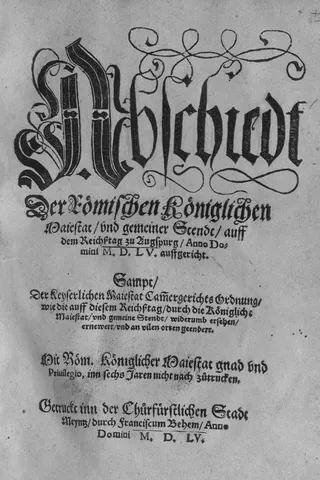 Abschiedt
Der Römischen Königlichen
Maiestat/ vnd gemeiner Stende/ auff
dem Reichßtag zu Augspurg/ Anno Do-
mini M. D. LV. auffgericht.
Sampt/
Der Keyserlichen Maiestat Cam̃ergerichts Ordnung/
wie die auff diesem Reichßtag/ durch die Königlich:
Maiestat/ vnd gemeine Stende/ widerumb ersehen/
ernewert/ vnd an vilen orten geendert.
Mit Röm. Königlicher Maiestat gnad vnd
Priuilegio, inn sechs Jaren nicht nach zůtrucken.
Getruckt inn der Chůrfürstlichen Stadt
Meyntz/ durch Franciscum Behem/ Anno
Domini M. D. LV.